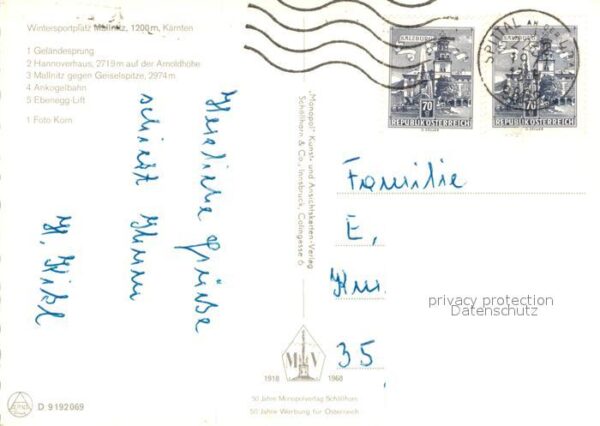 Wintersportplatz Mallnitz, 1200 m, Kärnten
1 Geländesprung
2 Hannoverhaus, 2719 m auf der Arnoldhöhe
3 Mallnitz gegen Geiselspitze, 2974 m
4 Ankogelbahn
5 Ebenegg-Lift
1 Foto Korn
Herzliche Grüße
schickt Ihnen
H.
„Monopol" Kunst- und Ansichtskarten-Verlag
Schöllhorn & Co., Innsbruck, Colingasse 6
SALZBURG
70
REPUBLIK ÖSTERREICH
70
REPUBLIK ÖSTERREICH
SPITTAL AN DER
Familie
E,
35
privacy protection
Datenschutz
M V
1918 1968
50 Jahre Monopolverlag Schöllhorn
50 Jahre Werbung für Österreich
D 9192069